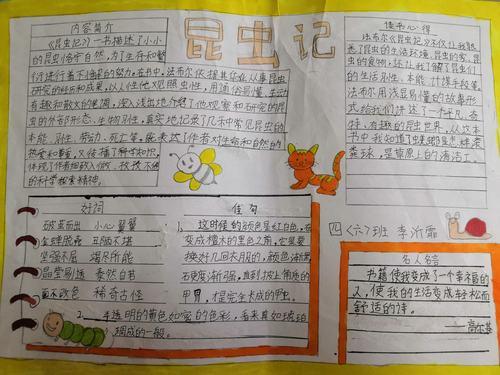 昆虫记
内容简介
《昆虫记》一书描述了小小
的昆虫恪守自然,为了生存和繁
衍进行着不懈的努力。在书中,法布尔依据其毕生从事昆虫
研究的经历和成果,以人性化观照虫性,用通俗易懂、生动
有趣和散文的笔调,深入浅出地介绍了他观察和研究的昆
虫的外部形态、生物习性,真实地记录了几种常见昆虫的
本能、习性、劳动、死亡等,既表达了作者对生命和自然的
热爱和尊重,又传播了科学知识,
体现了作者细致入微、孜孜不倦
的科学探索精神。
读书心得
法布尔《昆虫记》不仅让我熟
悉了昆虫的生活环境,昆虫的家,昆
虫的食物,还让我了解了昆虫们
的生活习性、本能
法布尔用浅显易懂的故事形
式给我们讲述了一个非凡、奇
特、有趣的昆虫世界,从这本
书中我知道了蜣螂
粪球,是草原上的清洁工。
好词
破茧而出 小心翼翼
生理脱壳
坚强不屈 竭尽所能
晶莹剔透 泰然自若
面不改色 稀奇古怪
佳句
1、这时候的颜色是红白色,在
变成檀木的黑色之前,它是要
换好几回衣服的,颜色渐黑,
硬度渐强,直到披上角质的
甲胄,才是完全长成的甲虫。
2、半透明的黄色如蜜的色彩,看来真如琥珀
雕成的一般。
四〈六〉班 李沂霏
名人名言
书籍使我变成了一个幸福的
人,使我的生活变成轻松而
舒适的诗。
——高尔基